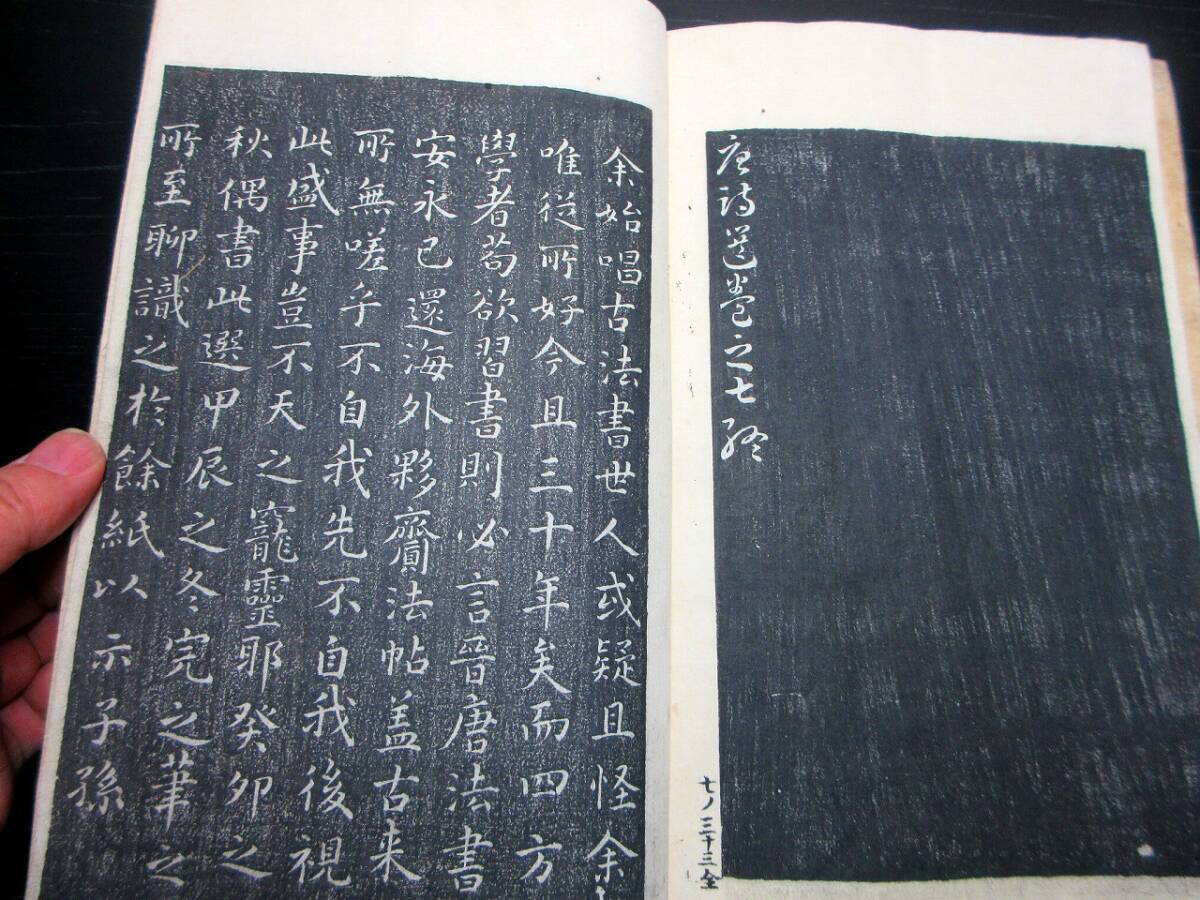 唐詩選卷之七終
七ノ三十三全
余始唱古法書世人或疑且怪余
唯從所好今且三十年矣而四方
學者苟欲習書則必言晉唐法書
安永已還海外夥齎法帖盖古来
所無嗟乎不自我先不自我後視
此盛事豈不天之寵靈耶癸卯之
秋偶書此選甲辰之冬完之筆之
所至聊識之於餘紙以示子孫